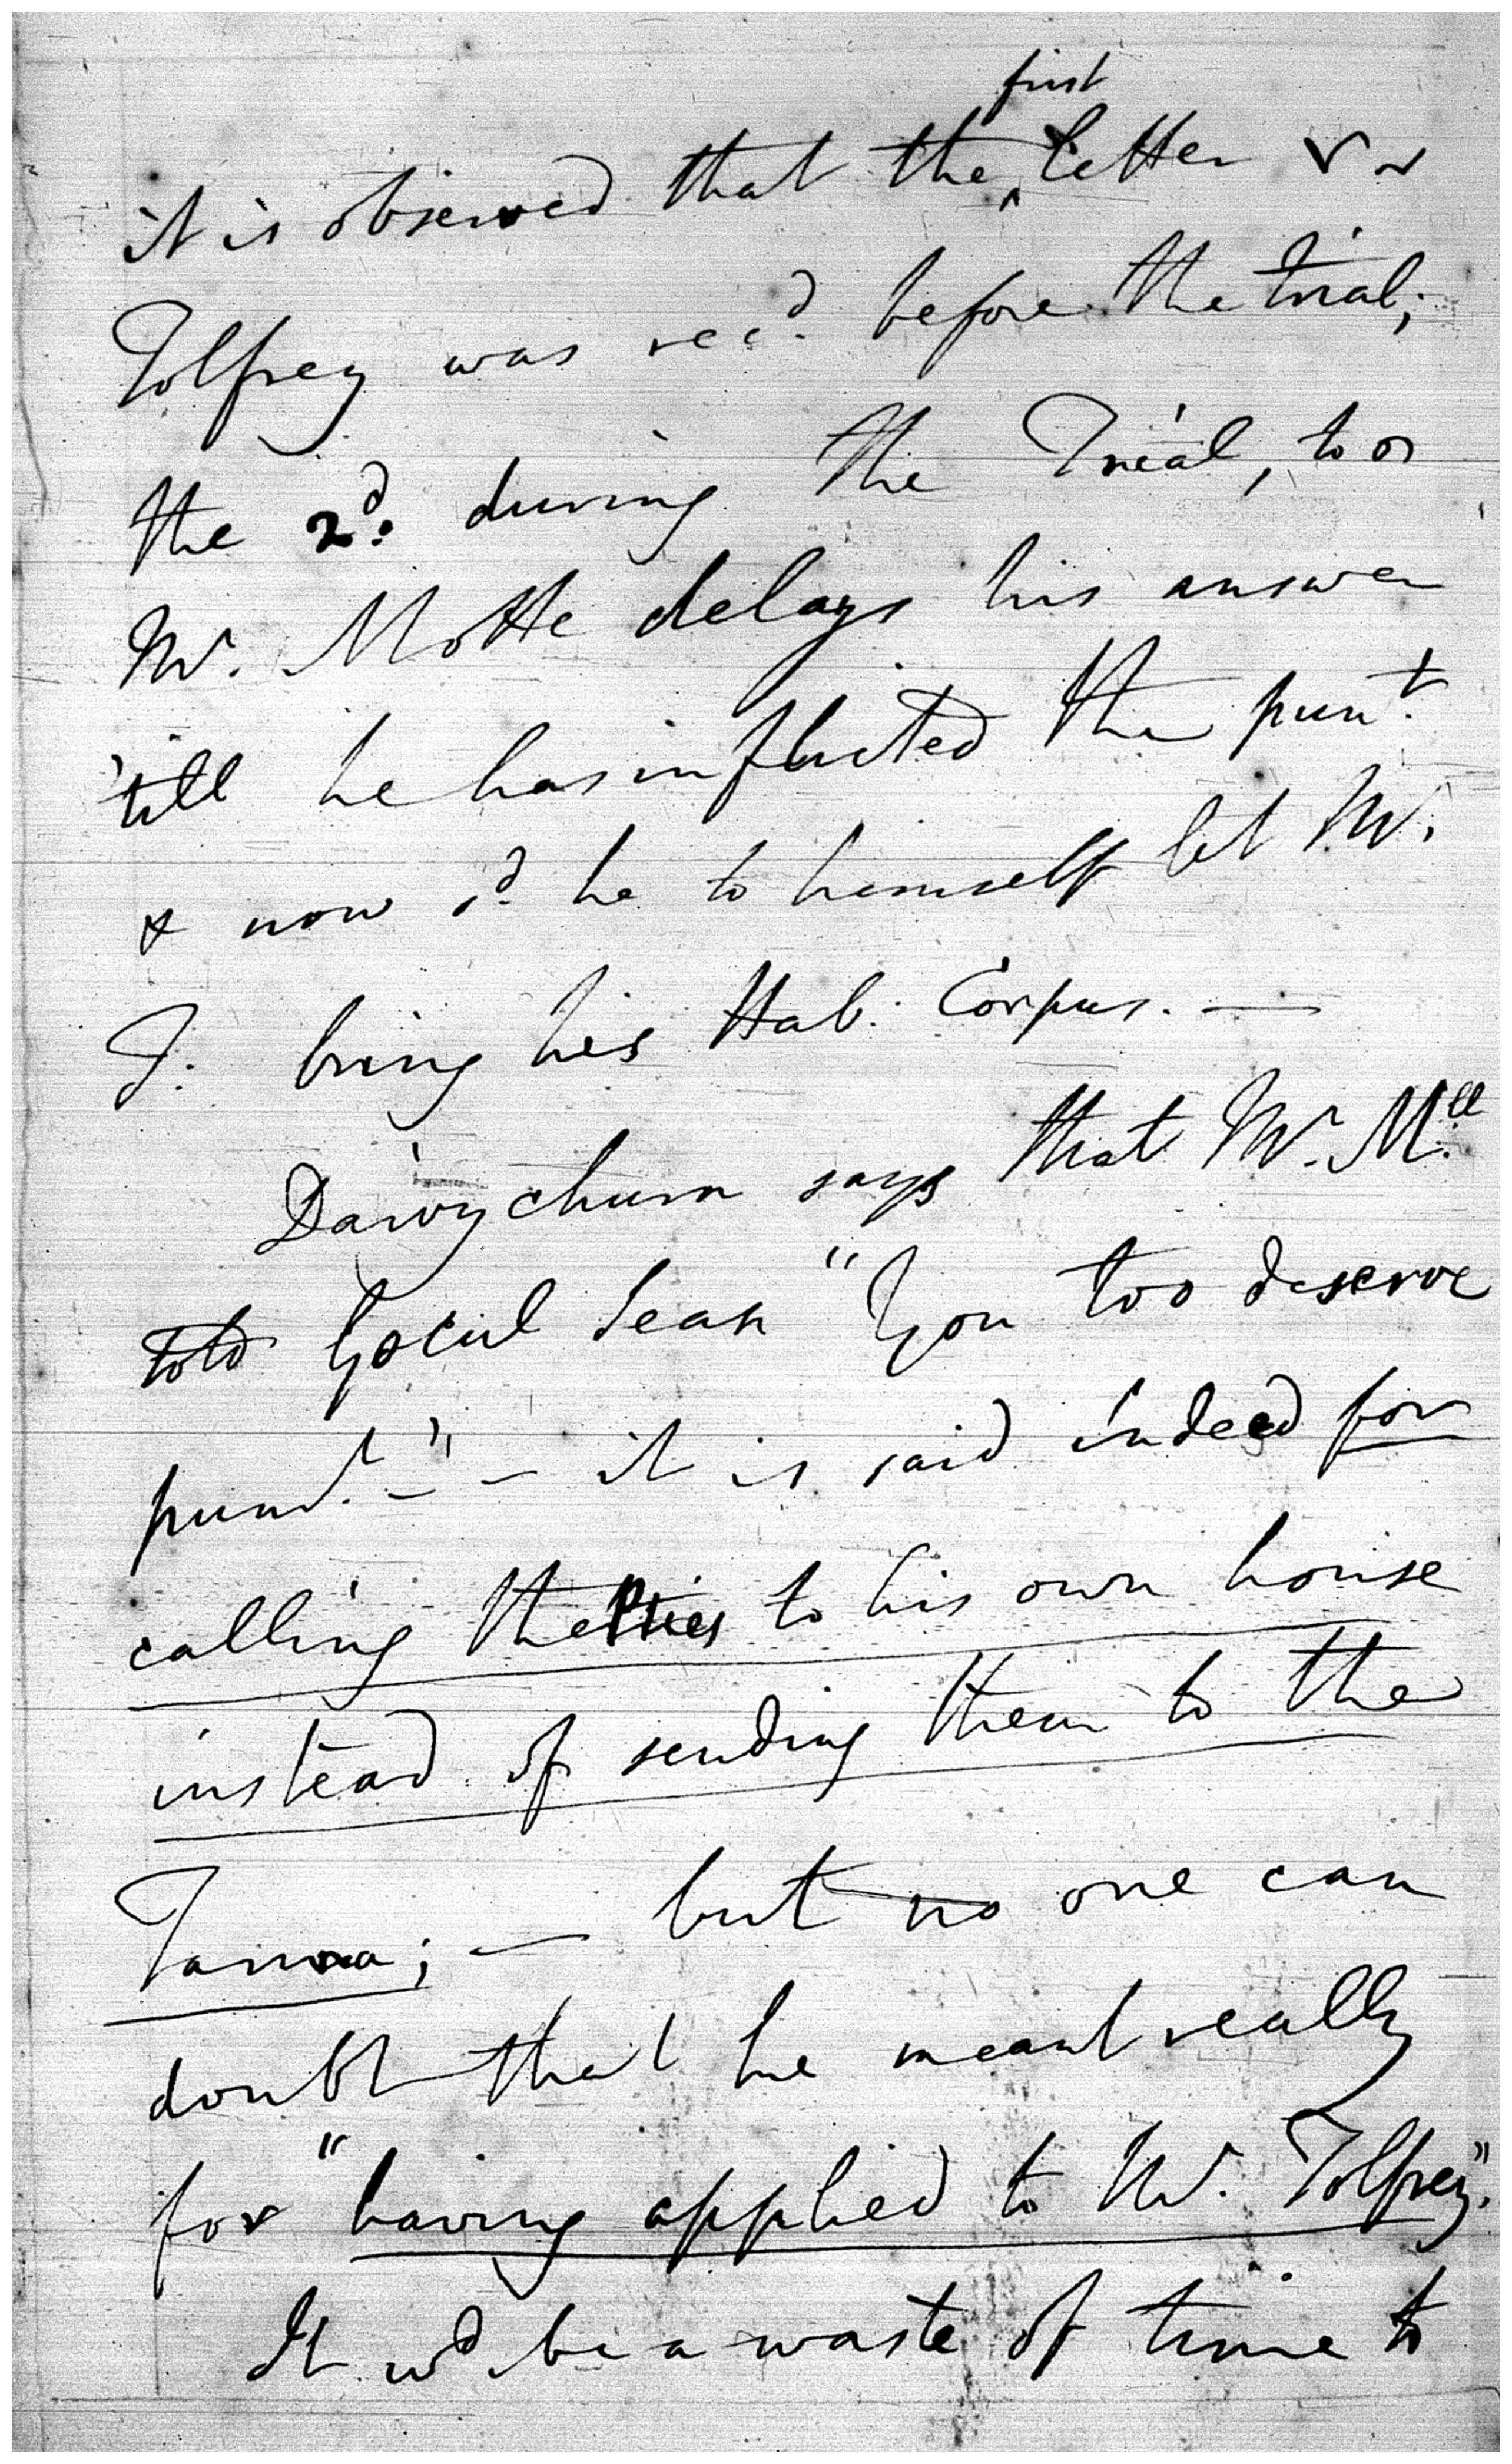 first
it is observed that the ^ letter
Tolfrey was rec.d before the trial;
the 2.d during the Trial, to
Mr. Motte delays his answer
'till he has inflicted the pun.t
& now s.d he to himself let Mr.
T. bring his Hab: Corpus. —
Dairy churn says that Mr. M.ll
told Gocul Sean "You too deserve
punt." — it is said indeed for
calling the Pties to his own house
instead of sending them to the
Tanna; — but no one can
doubt that he meant really
for "having applied to Mr. Tolfrey".
It wd be a waste of time to